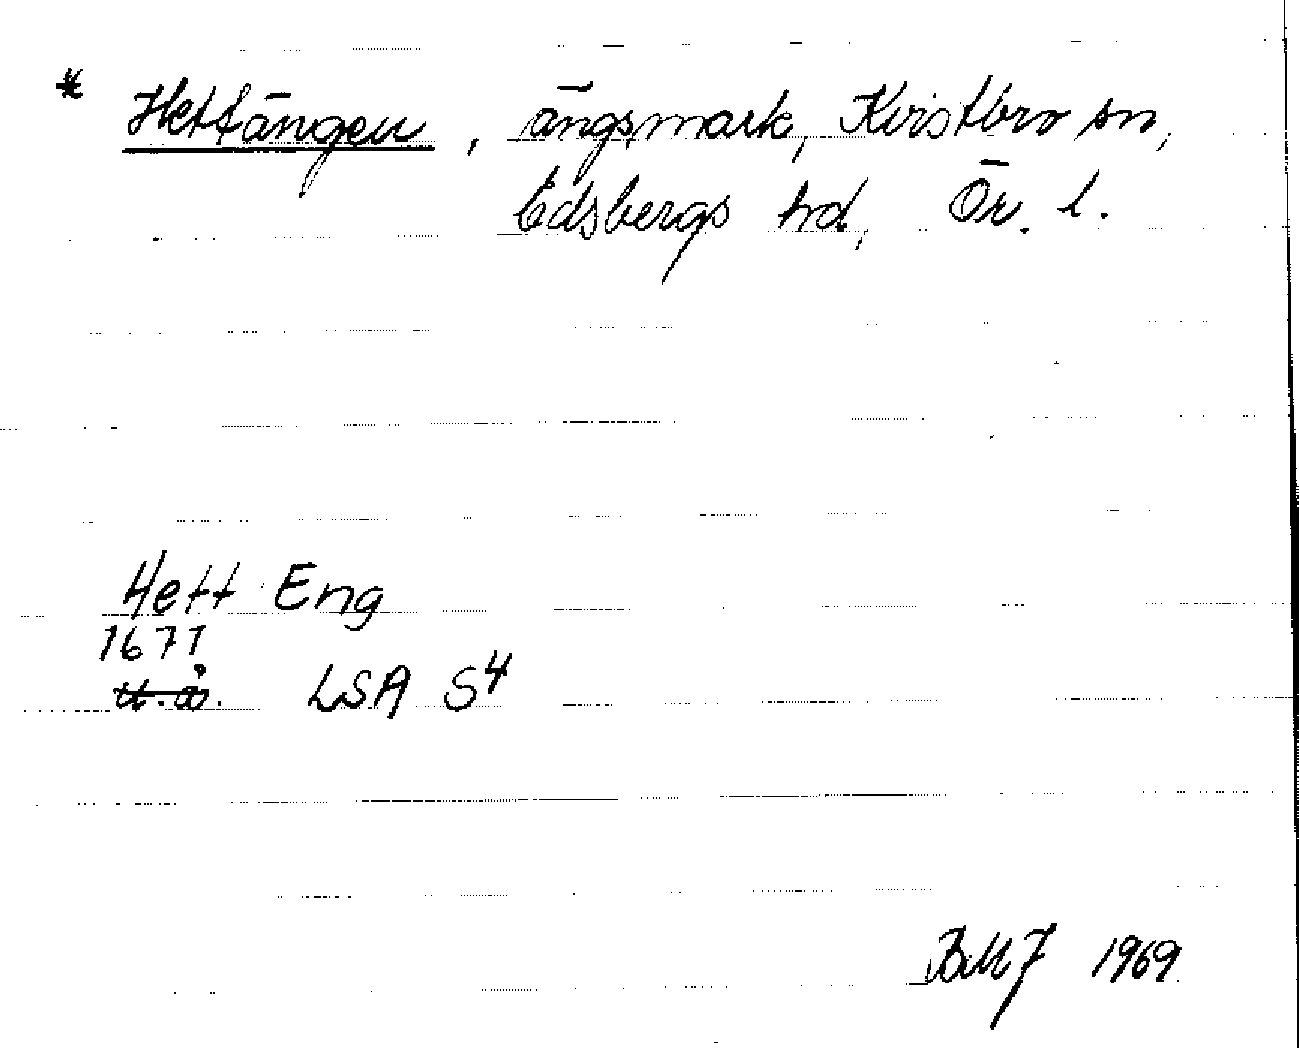 * Hettängen, ängsmark, Kvistbro sn,
Edsbergs hd, Ör. l.
Hett Eng
1671
u.å. LSA S4
BMJ 1969